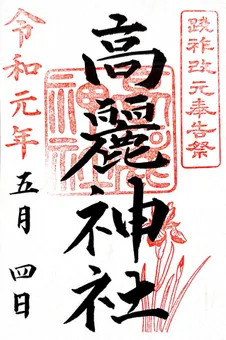 践祚改元奉告祭
高麗神社
令和元年
五月 四日